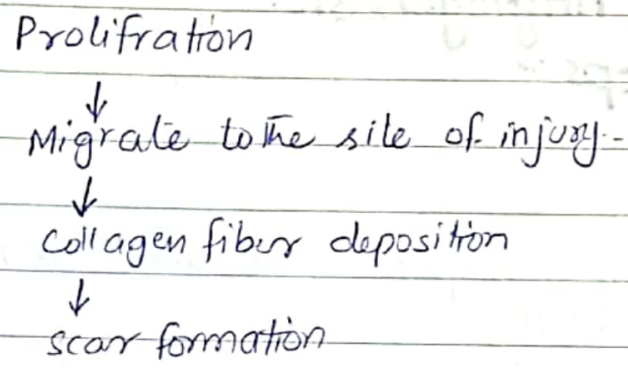 Prolifration
↓
Migrate to the site of injury.-
↓
Collagen fiber deposition
↓
scar formation